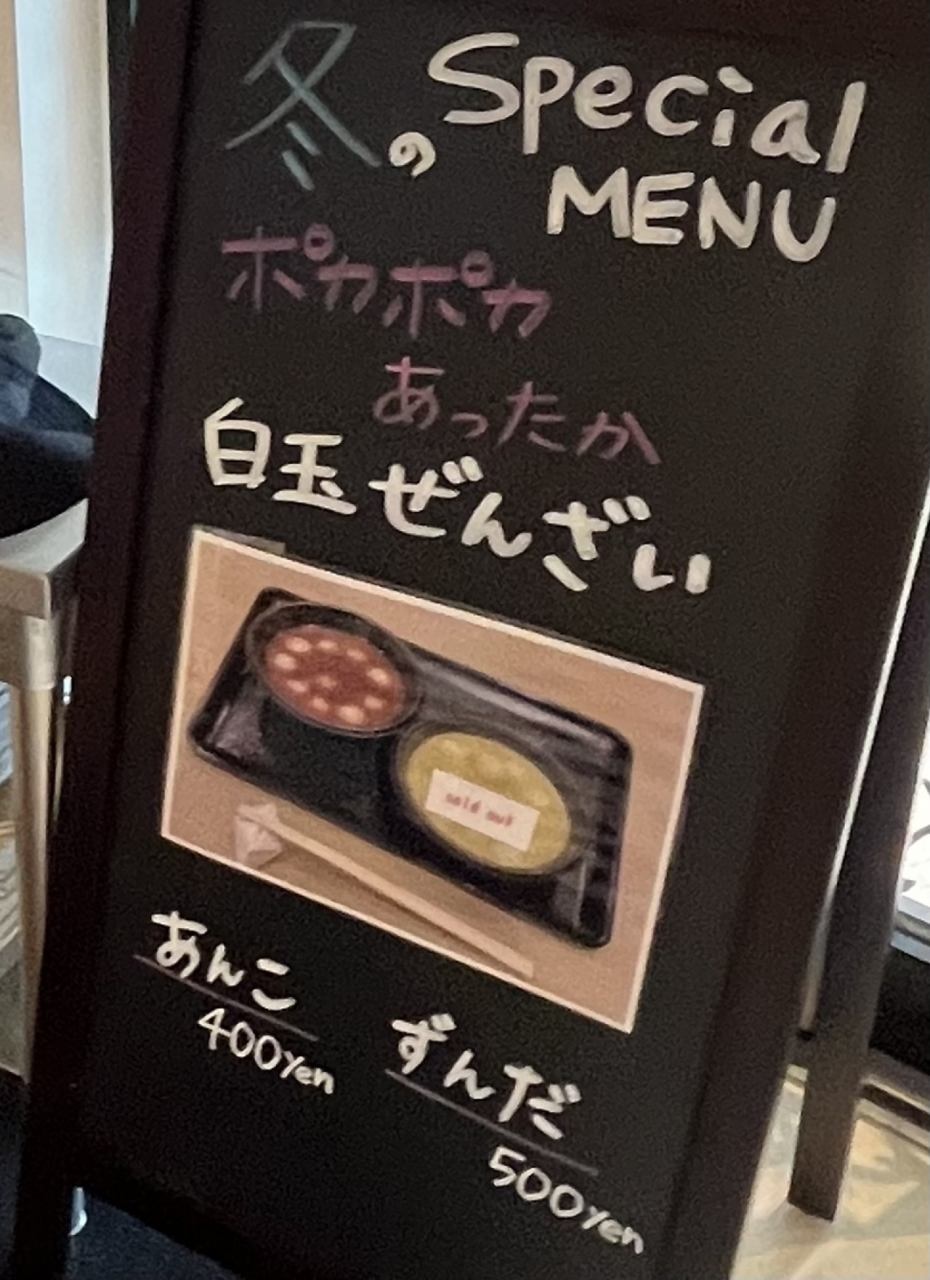 冬の Special
MENU
ポカポカ
あったか
白玉ぜんざい
sold out
あんこ
400yen
ずんだ
500yen